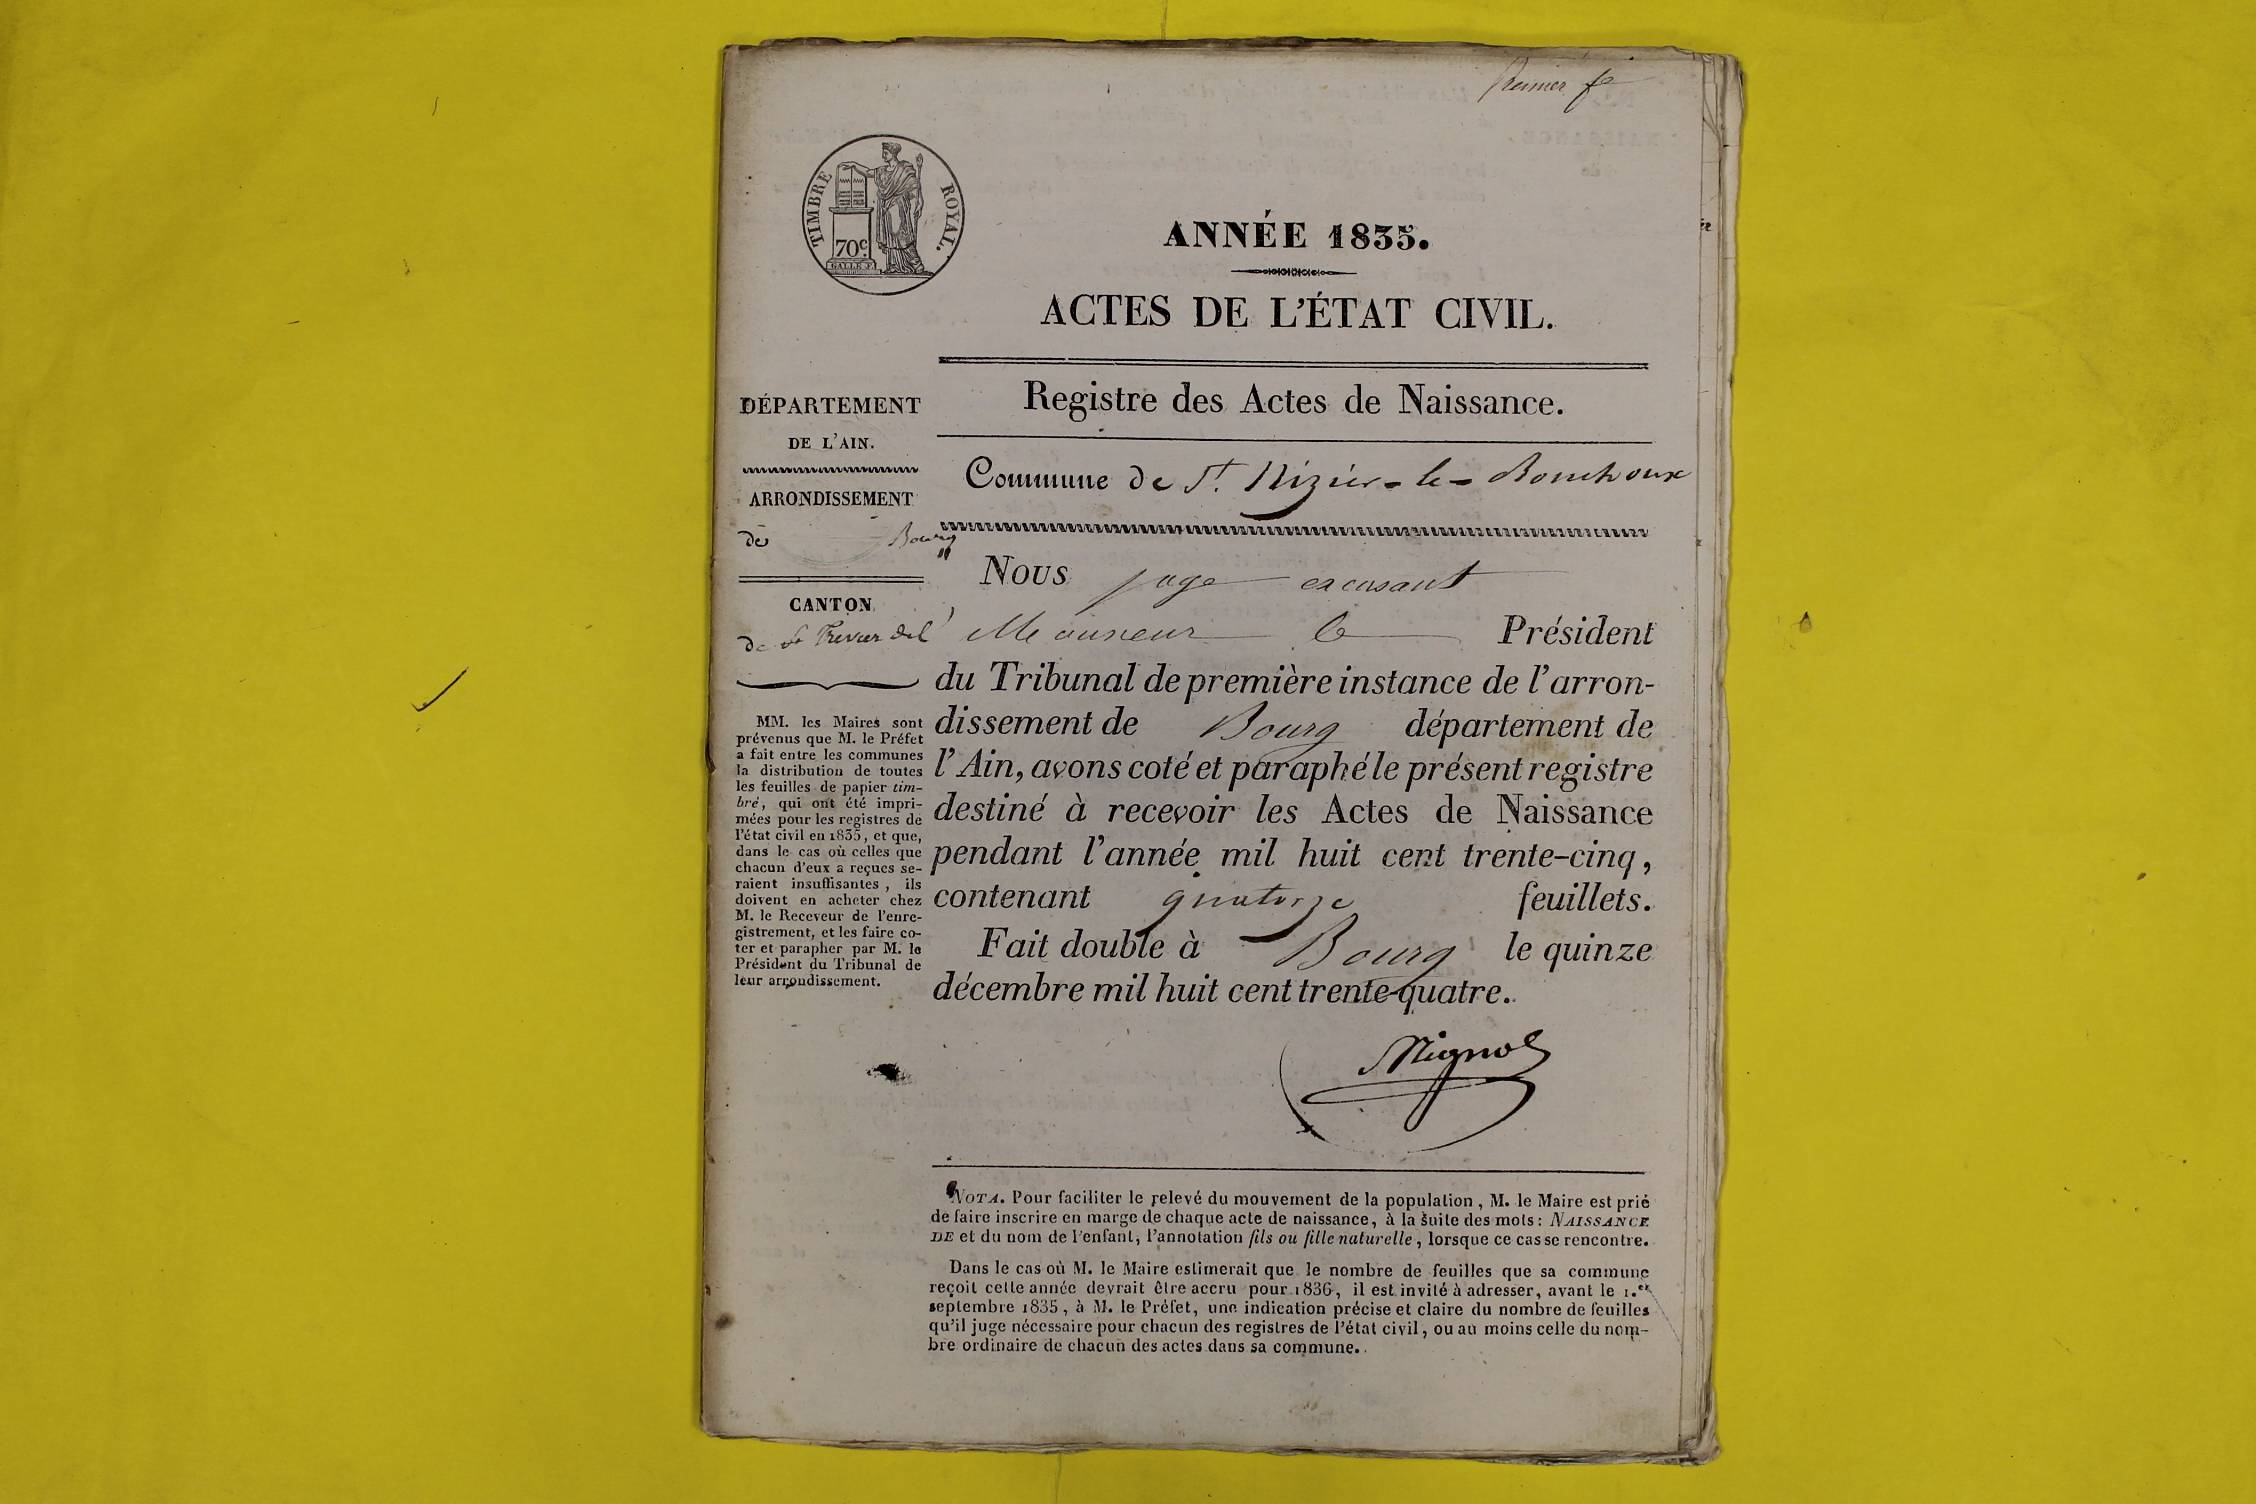 Premier fe
TIMBRE ROYAL.
70c
GALLE F.
ANNÉE 1835.
ACTES DE L'ÉTAT CIVIL.
Registre des Actes de Naissance.
Commune de St. Nizier-le-Bouchoux
DÉPARTEMENT
DE L'AIN.
ARRONDISSEMENT
de Bourg
CANTON
de St Trivier
MM. les Maires sont
prévenus que M. le Préfet
a fait entre les communes
la distribution de toutes
les feuilles de papier tim-
bré, qui ont été impri-
mées pour les registres de
l'état civil en 1835, et que,
dans le cas où celles que
chacun d'eux a reçues se-
raient insuffisantes, ils
doivent en acheter chez
M. le Receveur de l'enre-
gistrement, et les faire co-
ter et parapher par M. le
Président du Tribunal de
leur arrondissement.
Nous juge excusant
Monsieur le Président
du Tribunal de première instance de l'arron-
dissement de Bourg département de
l'Ain, avons coté et paraphé le présent registre
destiné à recevoir les Actes de Naissance
pendant l'année mil huit cent trente-cinq,
contenant quatorze feuillets.
Fait double à Bourg le quinze
décembre mil huit cent trente-quatre.
NOTA. Pour faciliter le relevé du mouvement de la population, M. le Maire est prié
de faire inscrire en marge de chaque acte de naissance, à la suite des mots: NAISSANCE
DE et du nom de l'enfant, l'annotation fils ou fille naturelle, lorsque ce cas se rencontre.
Dans le cas où M. le Maire estimerait que le nombre de feuilles que sa commune
reçoit cette année devrait être accru pour 1836, il est invité à adresser, avant le 1.er
septembre 1835, à M. le Préfet, une indication précise et claire du nombre de feuilles
qu'il juge nécessaire pour chacun des registres de l'état civil, ou au moins celle du nom-
bre ordinaire de chacun des actes dans sa commune.